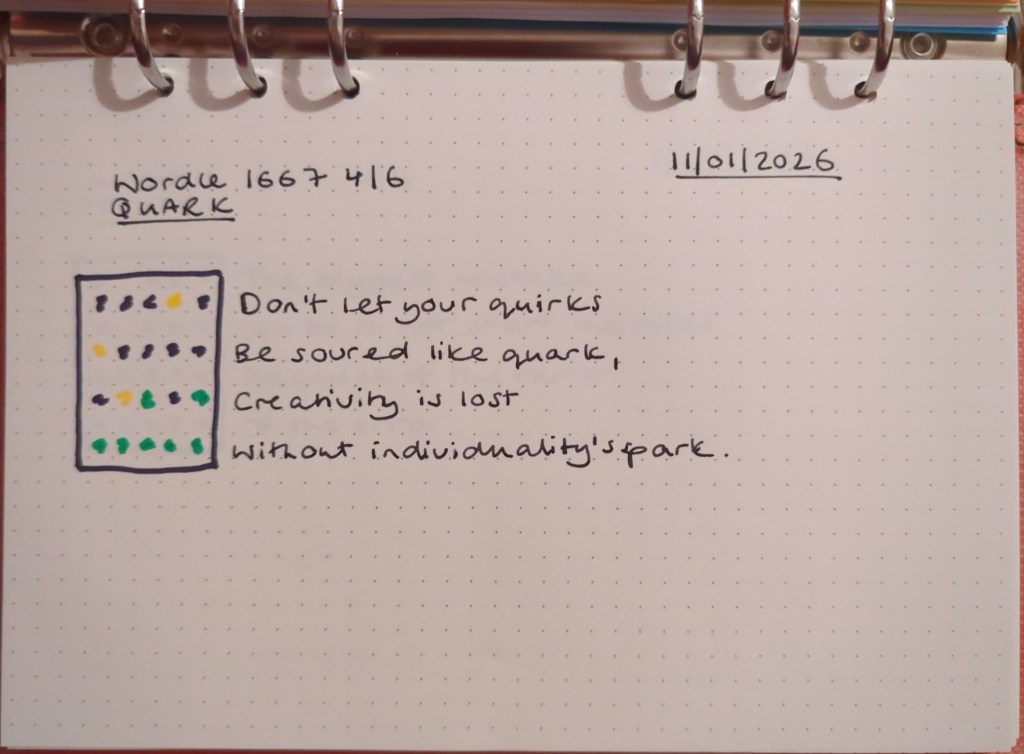 11/01/2026
Wordle 1667 4/6
QUARK
Don't let your quirks
Be soured like quark,
Creativity is lost
Without individuality's spark.